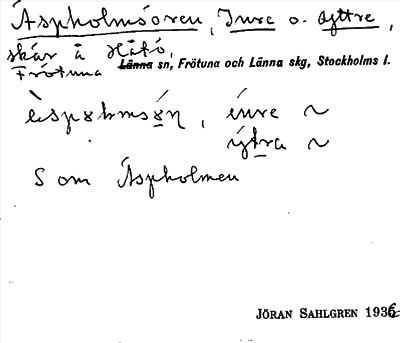 Áspholmsören, Inre o. Yttre,
skär å Håtö,
Frötuna Länna sn, Frötuna och Länna skg, Stockholms l.
, ínre ~
ýtra ~
S om Áspholmen
JÖRAN SAHLGREN 1936